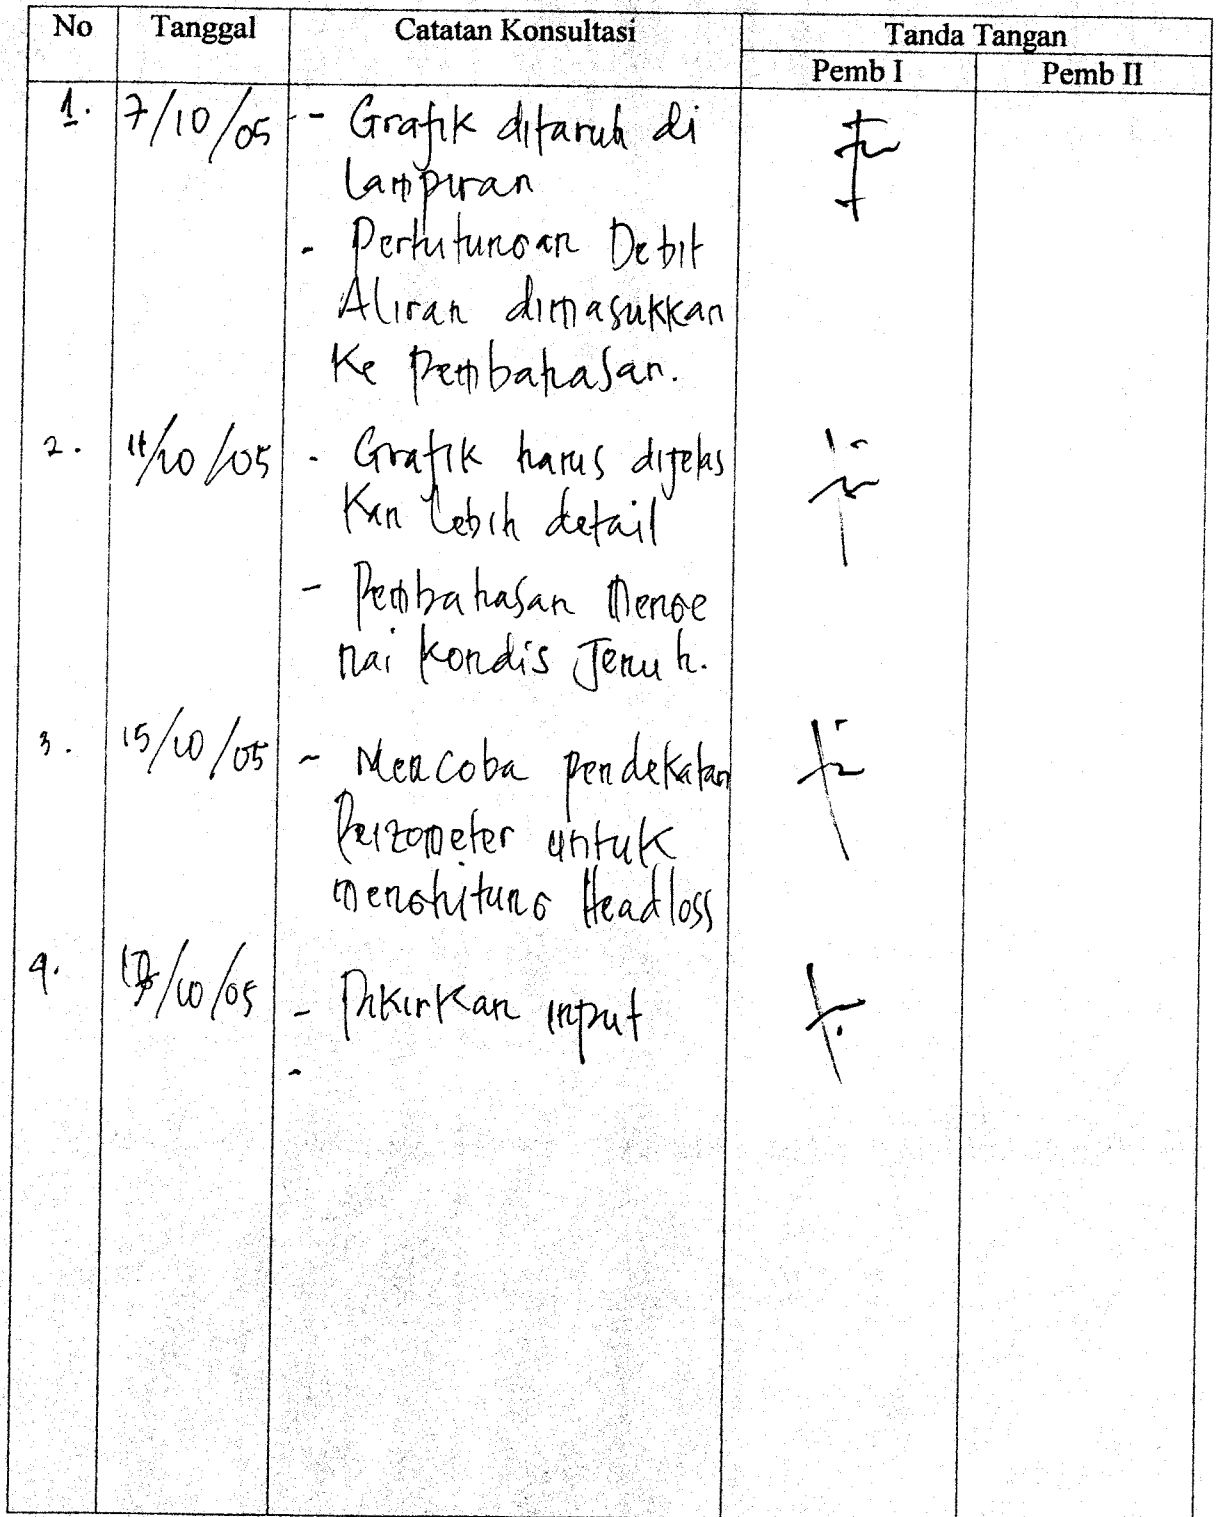 No Tanggal Catatan Konsultasi Tanda Tangan
Pemb I Pemb II
1. 7/10/05 - Grafik ditaruh di
Lampiran
- Perhitungan Debit
Aliran dimasukkan
Ke Pembahasan.
2. 11/10/05 - Grafik harus dijelas
Kan Lebih detail
- Pembahasan Menge
nai Kondis Jenuh.
3. 15/10/05 - Mencoba pendekatan
Peizometer untuk
menghitung Headloss
4. /10/05 - Pikirkan input
-